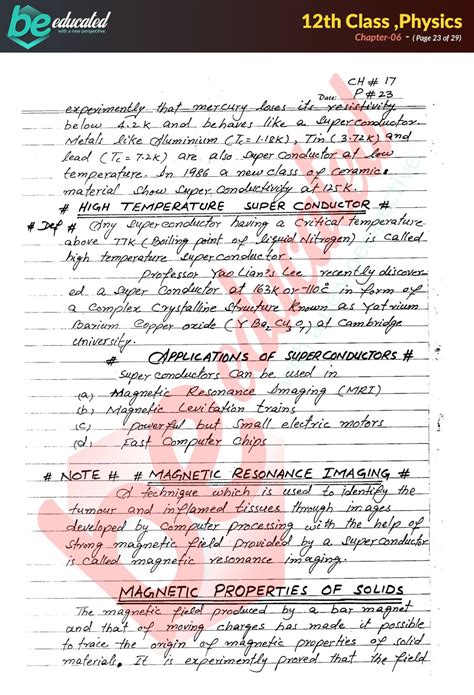 be educated
with a new perspective
12th Class ,Physics
Chapter-06 - ( Page 23 of 29)
CH # 17
Date: P # 23
experimentally that mercury loses its resistivity
below 4.2K and behaves like a superconductor.
Metals like Aluminium (Tc = 1.18K), Tin (3.72K) and
lead (Tc = 7.2K) are also super Conductor at low
temperature. In 1986 a new class of Ceramic
material Show Super Conductivity at 125K.
# HIGH TEMPERATURE SUPER CONDUCTOR #
# Def # Any Superconductor having a Critical temperature
above 77K (Boiling point of liquid Nitrogen) is called
high temperature superconductor.
Professor Yao Lian's Lee recently discover-
ed a Super Conductor at 163K or -110°C in form of
a Complex Crystalline Structure Known as Yatrium
Barium Copper oxide ( Y Ba2 Cu3 O7 ) at Cambridge
University.
# APPLICATIONS OF SUPERCONDUCTORS #
Super conductors Can be used in
(a) Magnetic Resonance Imaging (MRI)
(b) Magnetic Levitation trains
(c) powerful but Small electric motors
(d) Fast Computer Chips
# NOTE # # MAGNETIC RESONANCE IMAGING #
A technique which is used to identify the
tumour and inflamed tissues through images
developed by Computer processing with the help of
Strong magnetic field provided by a Superconductor
is called magnetic resonance imaging.
MAGNETIC PROPERTIES OF SOLIDS
The magnetic field produced by a bar magnet
and that of moving charges has made it possible
to trace the origin of magnetic properties of solid
materials. It is experimentally proved that the field